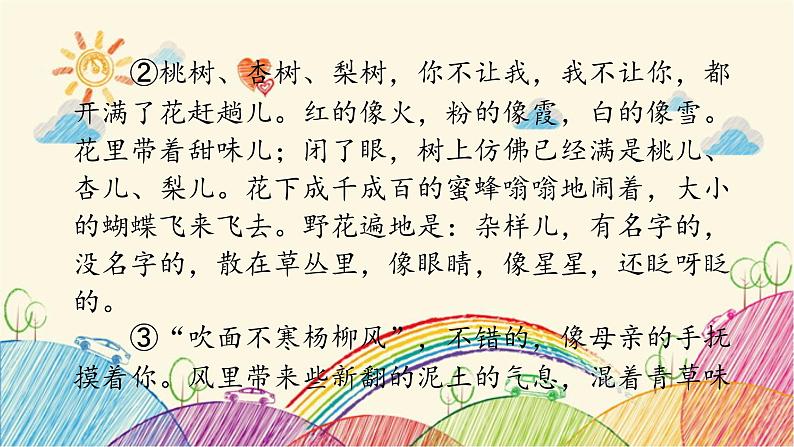 ②桃树、杏树、梨树，你不让我，我不让你，都
开满了花赶趟儿。红的像火，粉的像霞，白的像雪。
花里带着甜味儿；闭了眼，树上仿佛已经满是桃儿、
杏儿、梨儿。花下成千成百的蜜蜂嗡嗡地闹着，大小
的蝴蝶飞来飞去。野花遍地是：杂样儿，有名字的，
没名字的，散在草丛里，像眼睛，像星星，还眨呀眨
的。
③“吹面不寒杨柳风”，不错的，像母亲的手抚
摸着你。风里带来些新翻的泥土的气息，混着青草味